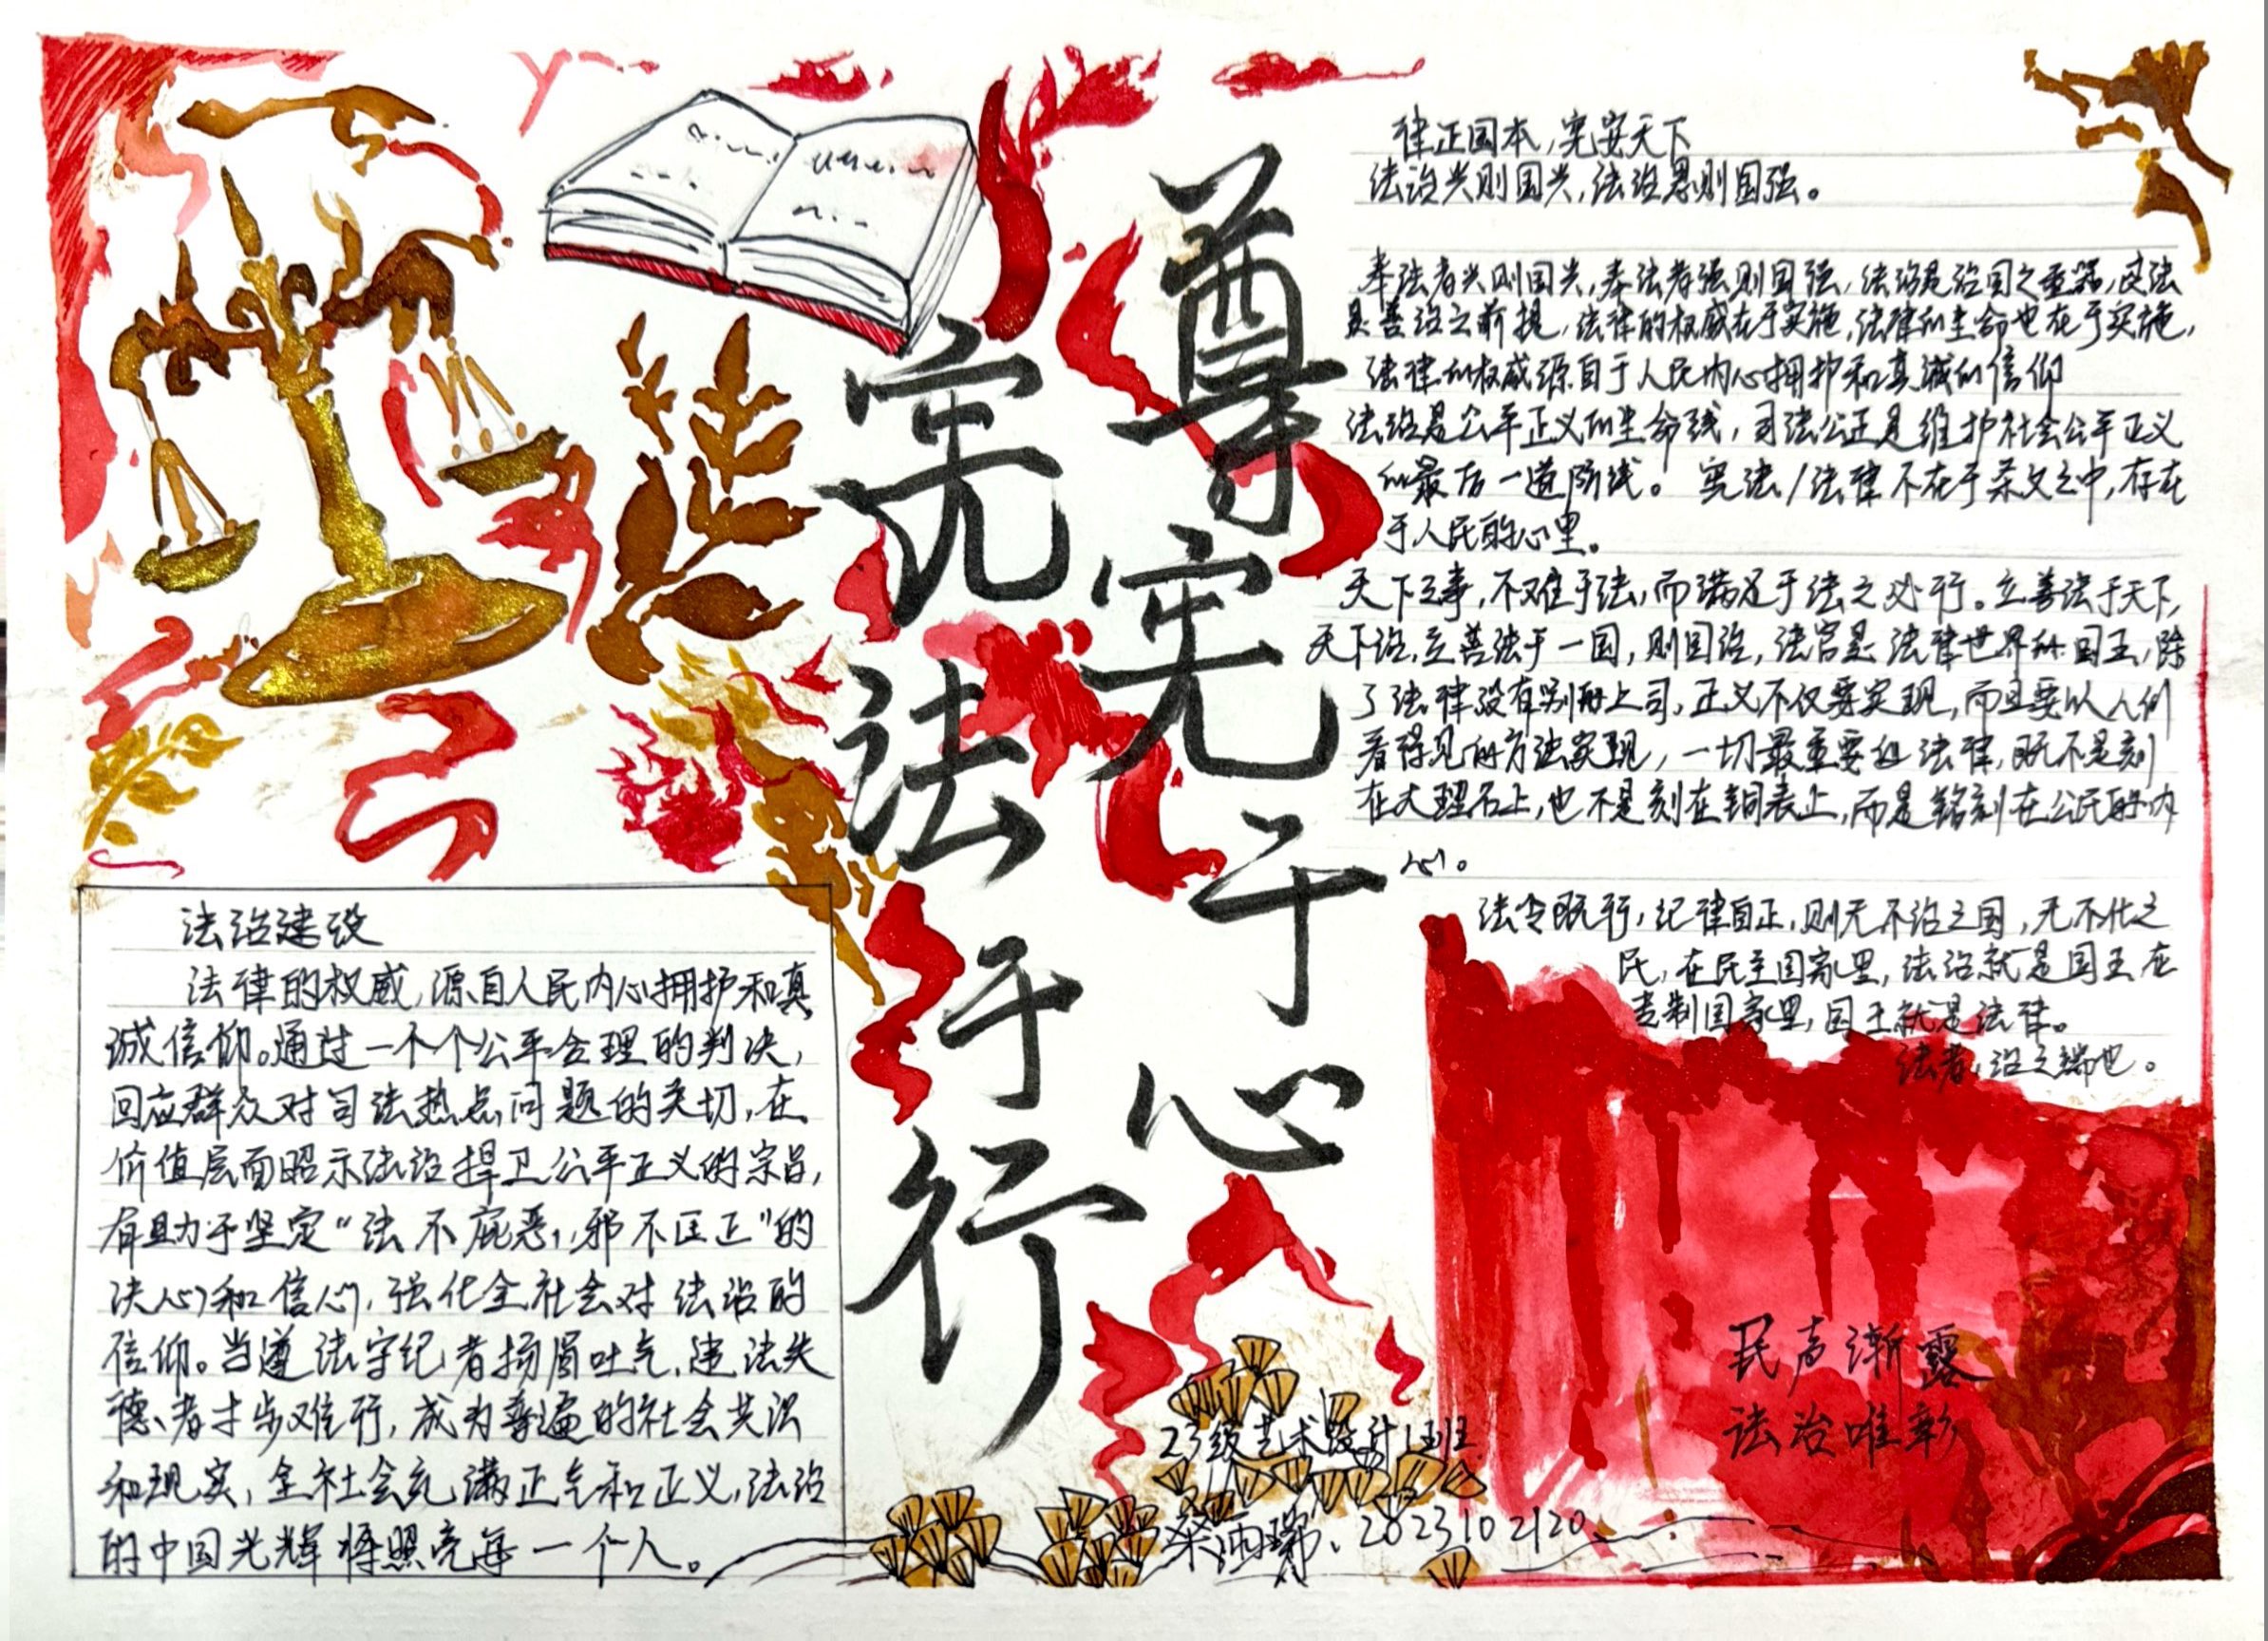 尊宪于心
宪法于行
律正国本，宪安天下
法治兴则国兴，法治愚则国强。
奉法者兴则国兴，奉法者强则国强，法治是治国之重器，良法
是善治之前提，法律的权威在于实施，法律的生命也在于实施，
法律的权威源自于人民内心拥护和真诚的信仰
法治是公平正义的生命线，司法公正是维护社会公平正义
的最后一道防线。宪法/法律不在于条文之中，存在
于人民的心里。
天下之事，不难于法，而满足于法之必行。立善法于天下，
天下治，立善法于一国，则国治，法官是法律世界的国王，除
了法律没有别的上司，正义不仅要实现，而且要以人们
看得见的方法实现，一切最重要的法律，既不是刻
在大理石上，也不是刻在铜表上，而是铭刻在公民的内
心。
法令既行，纪律自正，则无不治之国，无不化之
民，在民主国家里，法治就是国王在
专制国家里，国王就是法律。
法者，治之端也。
法治建设
法律的权威，源自人民内心拥护和真
诚信仰。通过一个个公平合理的判决，
回应群众对司法热点问题的关切，在
价值层面昭示法治捍卫公平正义的宗旨，
有助于坚定“法不庇恶，邪不压正”的
决心和信心，强化全社会对法治的
信仰。当遵法守纪者扬眉吐气，违法失
德者寸步难行，成为普遍的社会共识
和现实，全社会充满正气和正义，法治
的中国光辉将照亮每一个人。
民声渐露
法治唯彰
23级艺术设计1班
2023102120